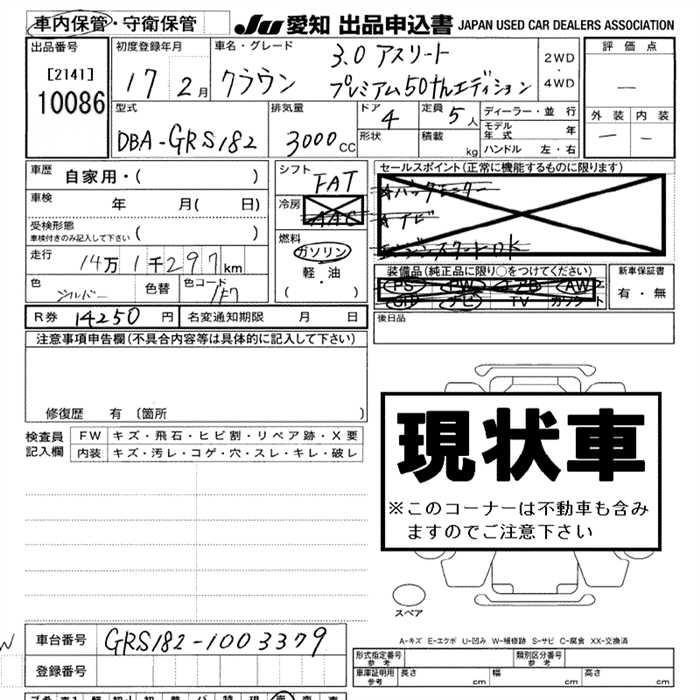 車内保管・守衛保管 JU 愛知 出品申込書 JAPAN USED CAR DEALERS ASSOCIATION
出品番号 初度登録年月 車名・グレード 2WD・4WD 評価点
[2141] 17 2月 クラウン 3.0 アスリート —
10086 プレミアム50thエディション
外装 内装
— —
型式 排気量 ドア 定員 ディーラー・並行
DBA-GRS182 3000cc 4 5人 モデル年式 年
形状 積載 kg ハンドル 左・右
車歴 自家用・( ) シフト FAT セールスポイント(正常に機能するものに限ります)
車検 年 月( 日) 冷房 AAC
受検形態 ( )
車検付きのみ記入して下さい
燃料 ガソリン
走行 14万1千297km 軽・油
( )
装備品(純正品に限り○をつけてください) 新車保証書
PS PW エアB AW 有・無
SR ナビ TV カセット
色 シルバー 色替 色コード 1F7
後日品
R券 14250円 名変通知期限 月 日
注意事項申告欄(不具合内容等は具体的に記入して下さい)
修復歴 有 〔箇所 〕
現状車
※このコーナーは不動車も含み
ますのでご注意下さい
検査員 FW キズ・飛石・ヒビ割・リペア跡・X要
記入欄 内装 キズ・汚レ・コゲ・穴・スレ・キレ・破レ
スペア
A-キズ E-エクボ U-凹み W-補修跡 S-サビ C-腐食 XX-交換済
車台番号 GRS182-1003379
登録番号
形式指定番号 参考 類別区分番号 参考
車庫証明用 参考 長さ cm 幅 cm 高さ cm